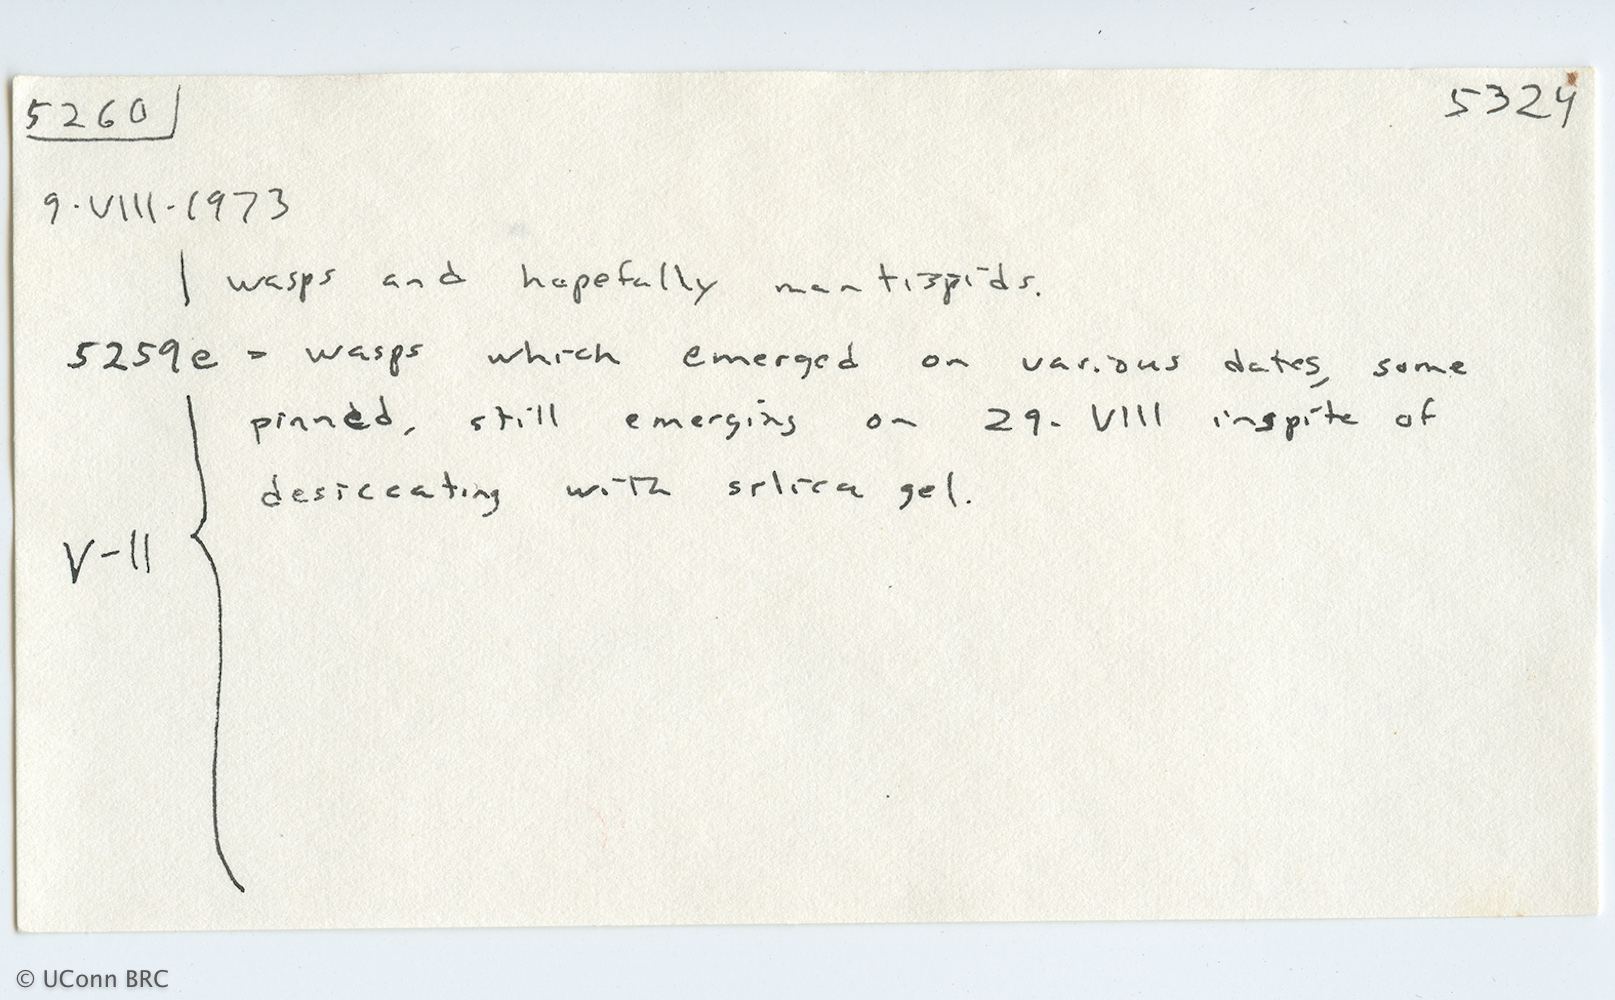 5260
5324
9·VIII·1973
wasps and hopefully mantispids.
5259e = wasps which emerged on various dates, some
pinned, still emerging on 29. VIII inspite of
desiccating with silica gel.
V-11
© UConn BRC